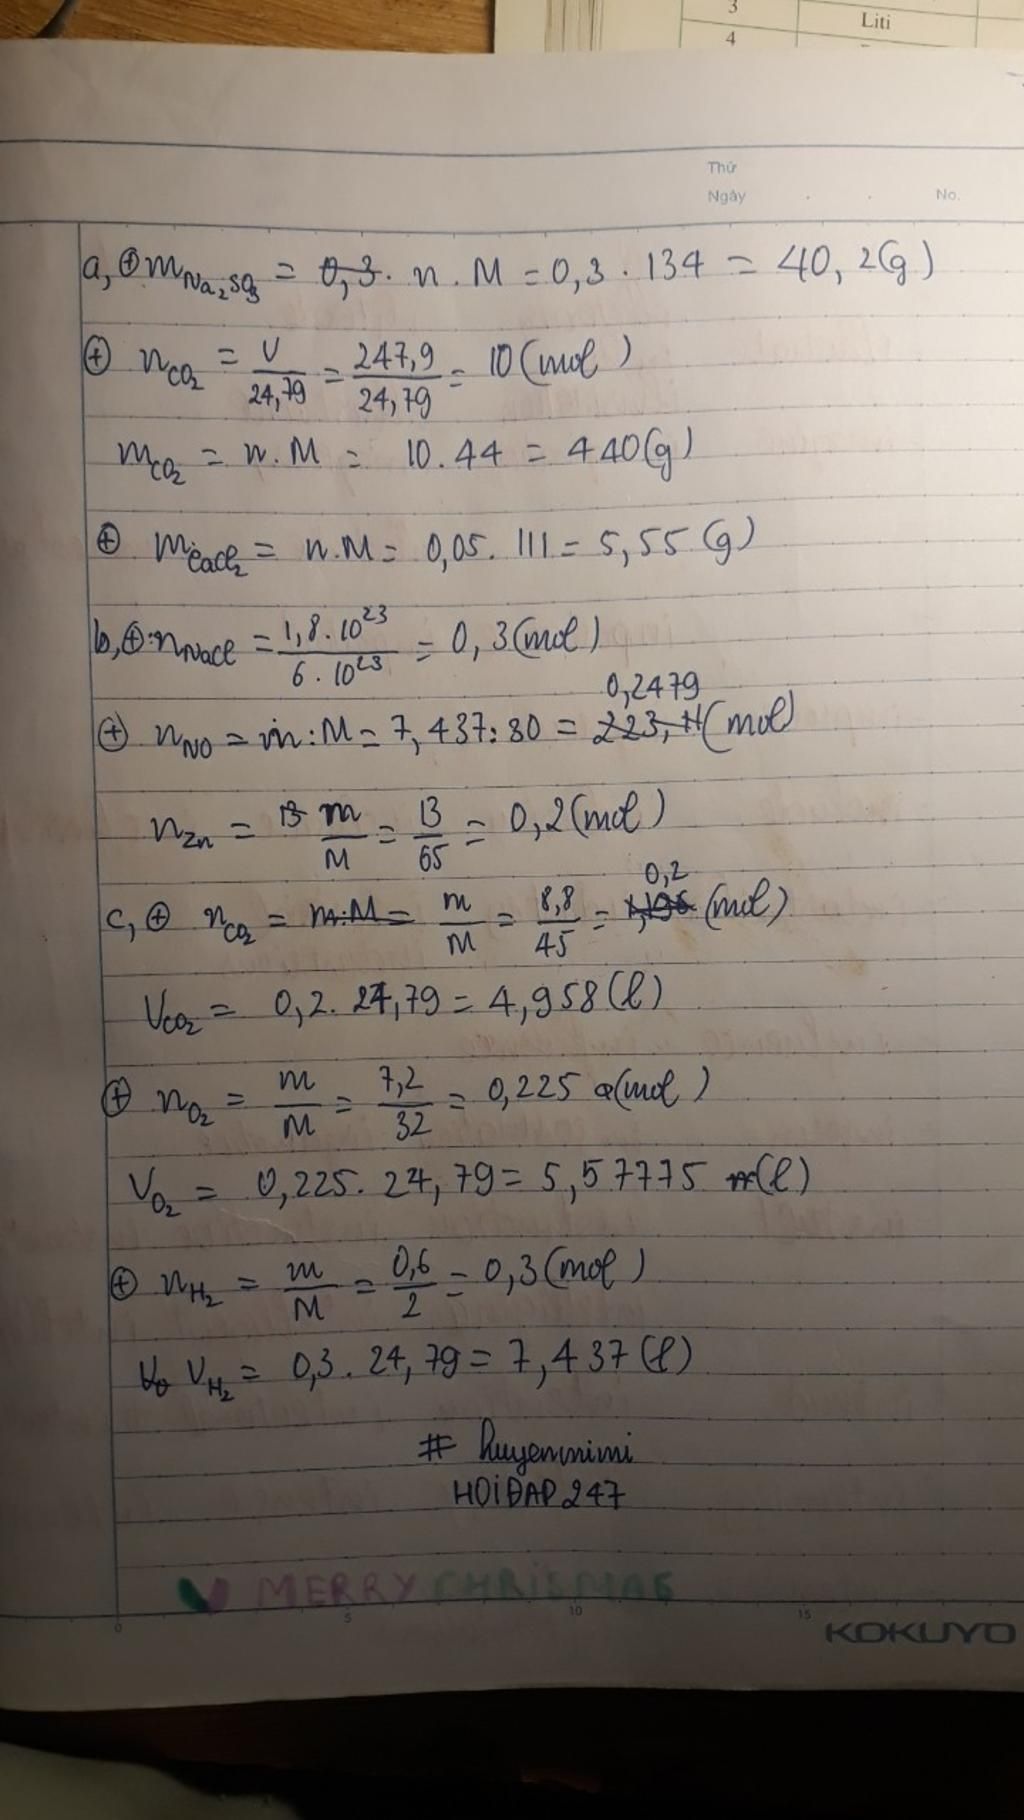 3
Liti
4
Thứ
Ngày . . No.
a, ⊕ m Na₂SO₃ = 0,3. n . M = 0,3 . 134 = 40,2(g)
⊕ n CO₂ = V/24,79 = 247,9/24,79 = 10 (mol)
m CO₂ = n . M = 10 . 44 = 440(g)
⊕ m CaCl₂ = n.M = 0,05. 111 = 5,55 (g)
b, ⊕: n NaCl = 1,8.10²³/6.10²³ = 0,3(mol)
0,2479
⊕ n NO = m : M = 7,437:30 = 223,11(mol)
n Zn = 13 m/M = 13/65 = 0,2(mol)
0,2
c, ⊕ n CO₂ = m:M = m/M = 8,8/45 = (mol)
V CO₂ = 0,2. 24,79 = 4,958(l)
⊕ n O₂ = m/M = 7,2/32 = 0,225 (mol)
V O₂ = 0,225. 24,79 = 5,57775 (l)
⊕ n H₂ = m/M = 0,6/2 = 0,3(mol)
V H₂ = 0,3 . 24,79 = 7,437(l)
# huyenmimi
HOIĐAP 247
MERRY CHRISMAS
0 5 10 15
KOKUYO